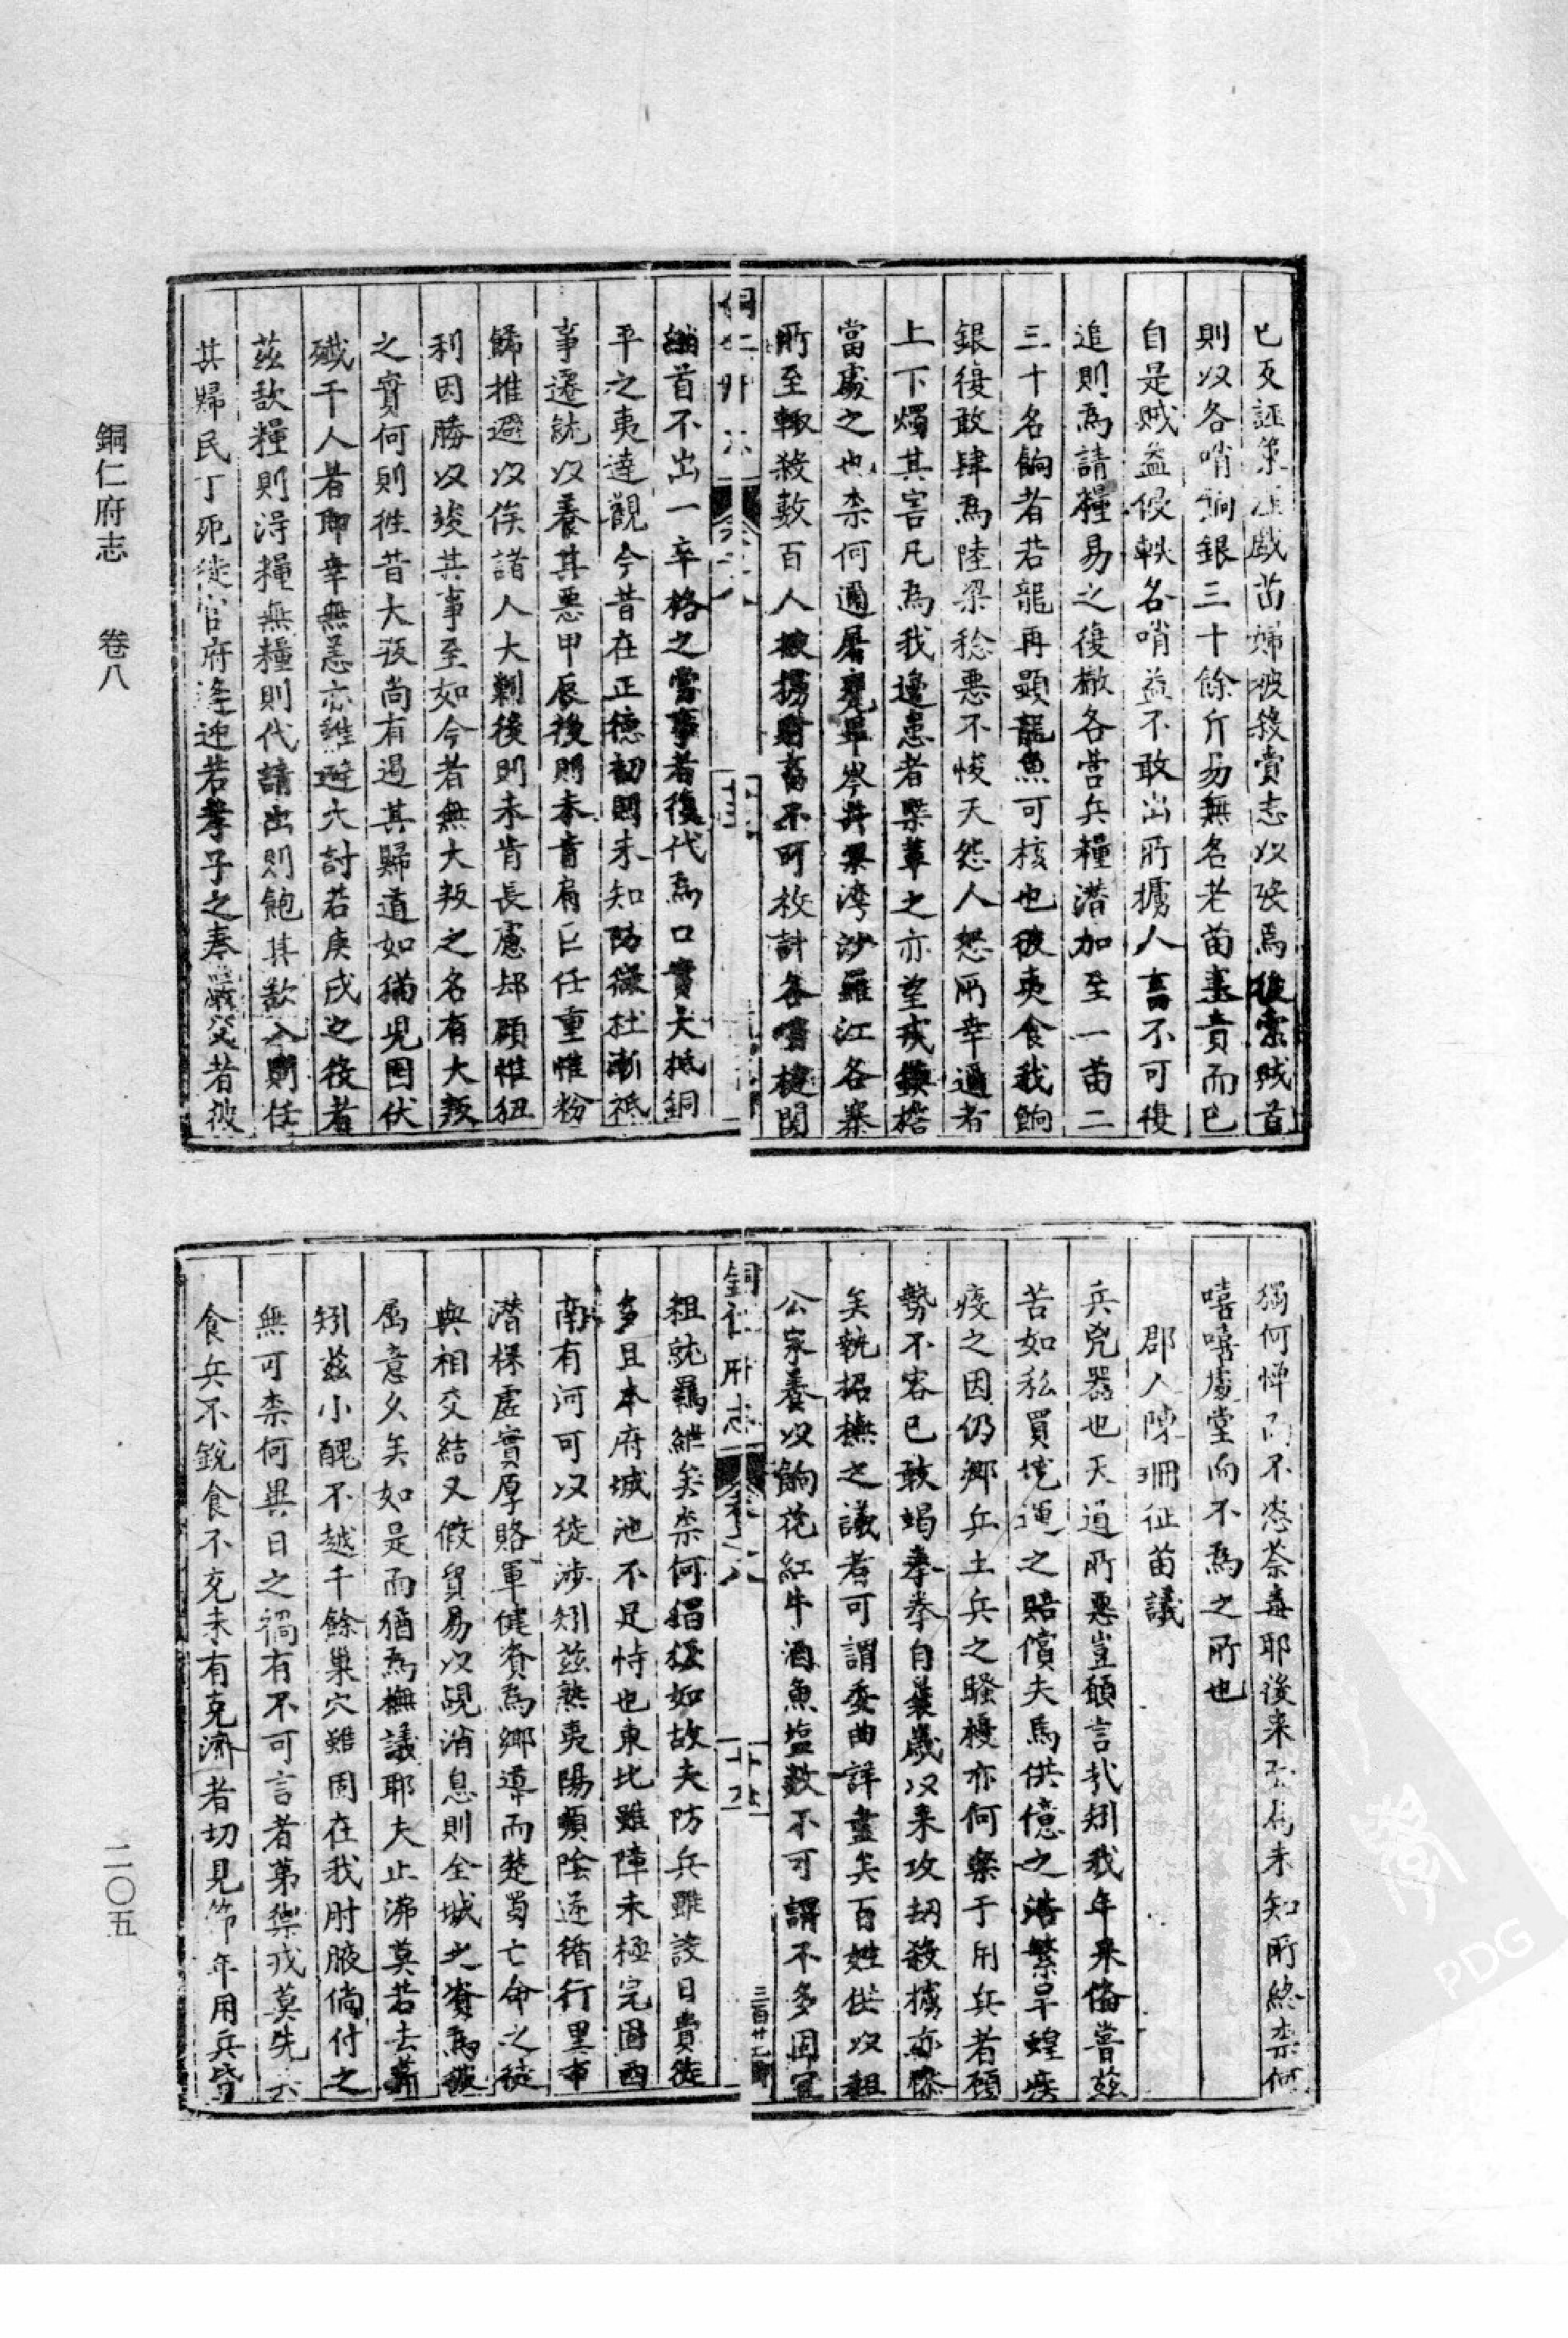 則以各哨餉銀三十餘斤易無名老苗塞責而已
自是賊益侵軼各哨益不敢出所擄人畜不可復
追則為請糧易之復撤各營兵糧潜加至一苗二
三十名餉者若龍再顯龍魚可核也彼夷食我餉
銀復敢肆為陸梁稔惡不悛天怨人怒所幸邇者
上下燭其害凡為我邊患者槩革之亦望戎鎮
當處之也柰何邇屠甕旱岑井渠湾沙羅江各寨
所至輙殺數百人被擄財畜不可枚計各哨
縮首不出一卒格之當事者復代為口實夫抵銅
平之夷逹觀今昔在正德初則未知防微杜漸祗
事遷就以養其惡甲辰後則未肯肩巨任重惟粉
餙推避以俟諸人大剿後則未肯長慮却顧惟狃
利因勝以竣其事至如今者無大叛之名有大叛
之實何則徃昔大叛尚有遏其歸道如猫兒囤伏
殱千人者即幸無恙亦難避大討若庚戌之役者
茲欵糧則得糧無糧則代請出則飽其欲入則任
其歸民丁死徙官府逢迎若孝子之奉嚴父者彼
獨何憚而不恣荼毒耶後来
未知所終柰何
嘻嘻處堂而不為之所也
郡人陳珊征苗議
兵兇器也天道所惡豈願言哉矧我年来偹嘗茲
苦如私買境運之賠償夫馬供億之浩繁旱蝗疾
疫之因仍鄉兵土兵之騷擾亦何樂于用兵者顧
勢不容已敢竭拳拳自某歲以来攻刼殺擄亦慘
矣執招撫之議者可謂委曲詳盡矣百姓供以粗
公家養以餉花紅牛酒魚塩数不可謂不多固冝
銅仁府志
粗就羈紲矣柰何猖獗如故夫防兵雖設日費徙
多且本府城池不足恃也東北雖障未極完固西
南有河可以徒涉矧茲熟夷陽順隂逆循行里市
潜探虛實厚賂軍健資為鄉導而楚蜀亡命之徒
與相交結又假貿易以覘消息則全城之資為彼
属意久矣如是而猶為撫議耶夫止沸莫若去薪
矧茲小醜不越千餘巢穴雖固在我肘腋倘付之
無可柰何異日之禍有不可言者第禦戎莫先
食兵不銳食不充未有克濟者切見節年用兵皆
銅仁府志　卷八
二〇五